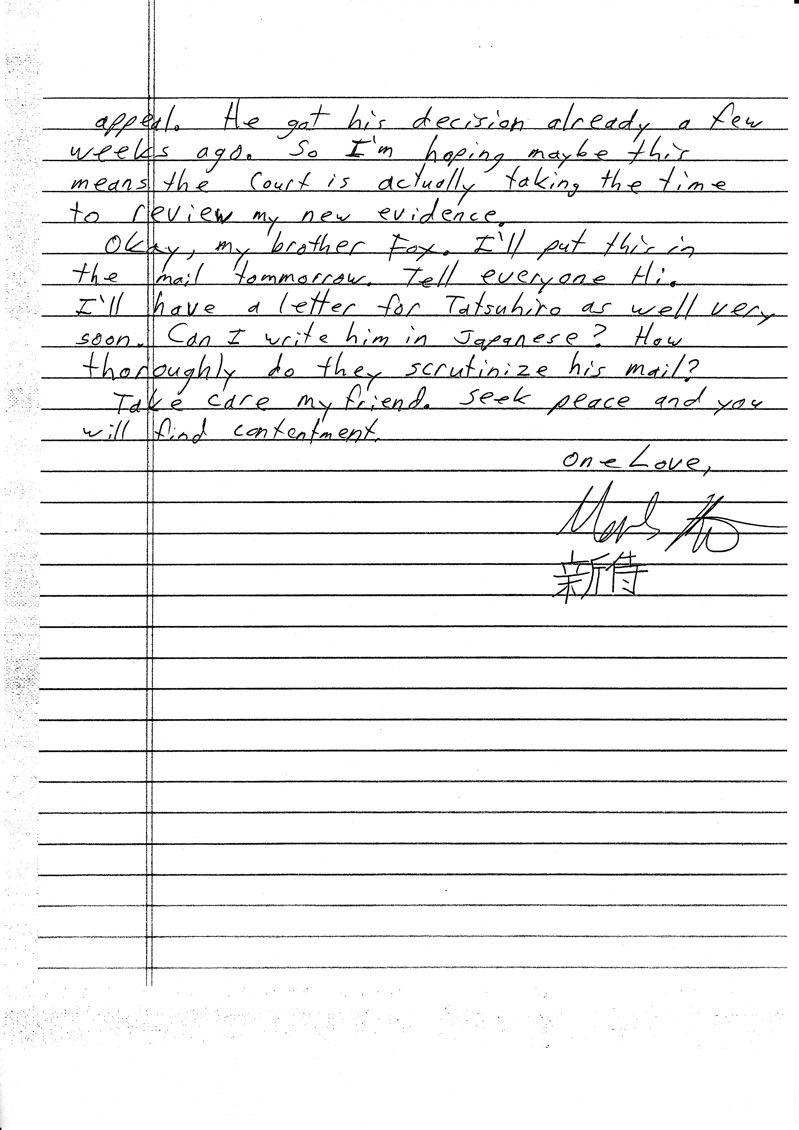 appeal. He got his decision already a few
weeks ago. So I'm hoping maybe this
means the Court is actually taking the time
to review my new evidence.
Okay, my brother Fox. I'll put this in
the mail tommorrow. Tell everyone Hi.
I'll have a letter for Tatsuhiro as well very
soon. Can I write him in Japanese? How
thoroughly do they scrutinize his mail?
Take care my friend. Seek peace and you
will find contentment.
One Love,
新侍